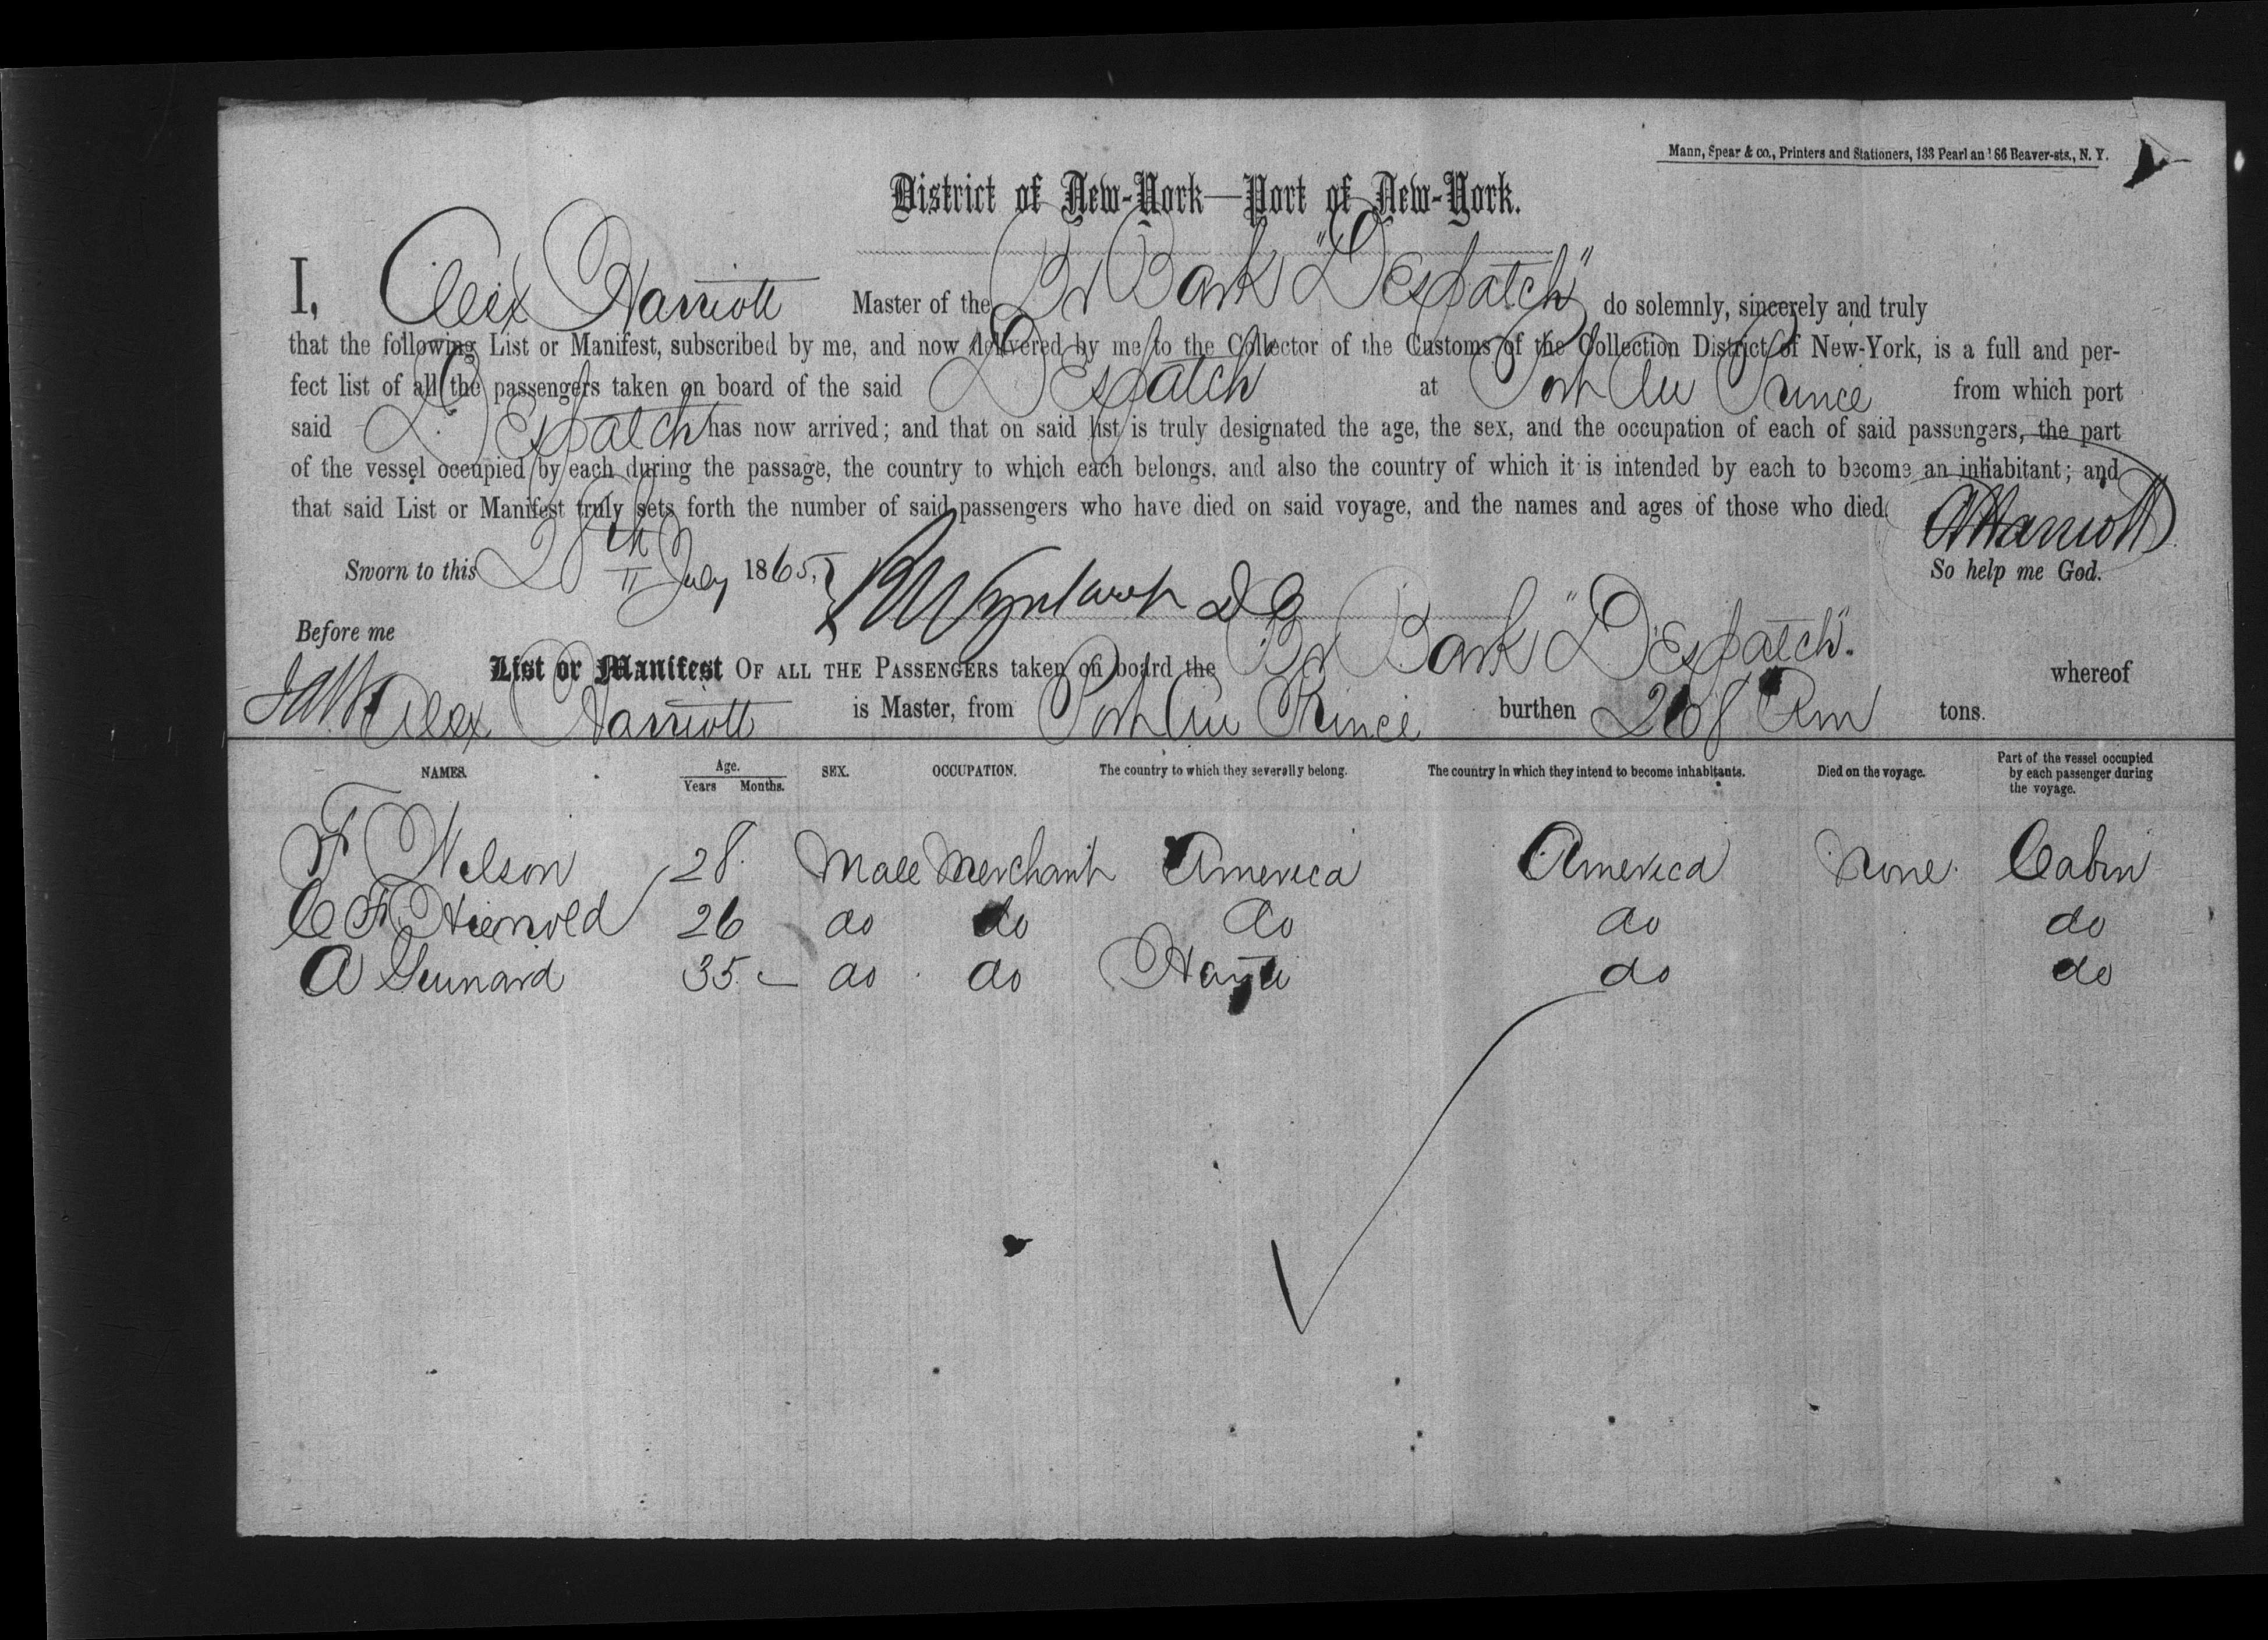 Mann, Spear & co., Printers and Stationers, 133 Pearl and 86 Beaver-sts., N. Y.
District of New-York—Port of New-York.
I, Alex Harriott Master of the Br Bark "Despatch" do solemnly, sincerely and truly
that the following List or Manifest, subscribed by me, and now delivered by me to the Collector of the Customs of the Collection District of New-York, is a full and per-
fect list of all the passengers taken on board of the said Despatch at Port Au Prince from which port
said Despatch has now arrived; and that on said list is truly designated the age, the sex, and the occupation of each of said passengers, the part
of the vessel occupied by each during the passage, the country to which each belongs, and also the country of which it is intended by each to become an inhabitant; and
that said List or Manifest truly sets forth the number of said passengers who have died on said voyage, and the names and ages of those who died.
A Harriott
Sworn to this 28th July 1865, So help me God.
Before me
List or Manifest OF ALL THE PASSENGERS taken on board the Br Bark "Despatch". whereof
Alex Harriott is Master, from Port Au Prince burthen 268 tons.
NAMES. Age. Years Months. SEX. OCCUPATION. The country to which they severally belong. The country in which they intend to become inhabitants. Died on the voyage. Part of the vessel occupied by each passenger during the voyage.
F Nelson 28 Male Merchant America America None. Cabin
C F 26 do do do do do
A 35 do do Hayti do do